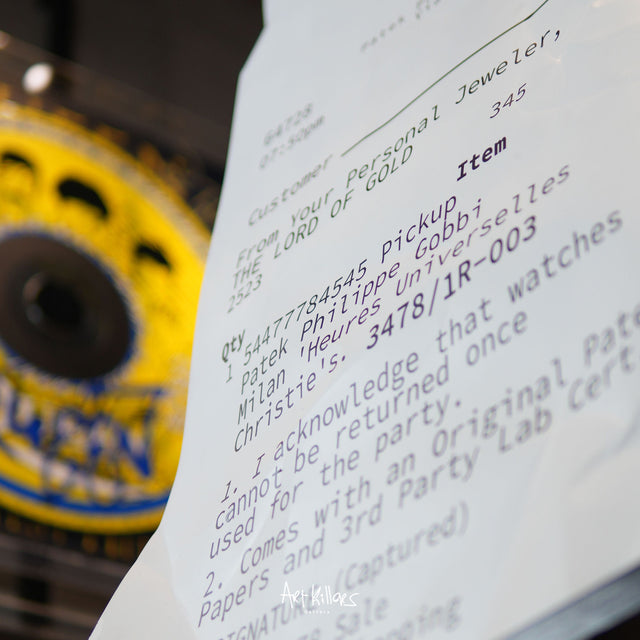 64728
07:50pm
Customer
From your Personal Jeweler,
THE LORD OF GOLD
2523
345
Qty
Item
1 54477784545 Pickup
Patek Philippe Gobbi
Milan 'Heures Universelles
Christie's. 3478/1R-003
1. I acknowledge that watches
cannot be returned once
used for the party.
2. Comes with an Original Pate
Papers and 3rd Party Lab Cert
SIGNATUR (Captured)
Sale
Art Killers